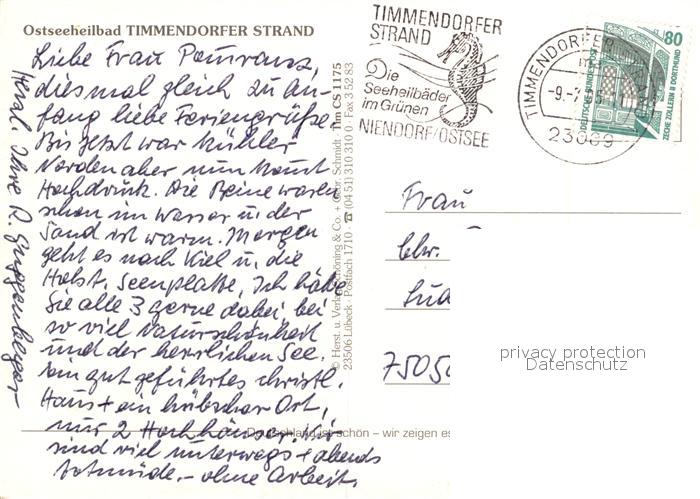 Ostseeheilbad TIMMENDORFER STRAND
Liebe Frau
diesmal gleich zu An-
fang liebe Feriengrüße.
Bis jetzt war kühler
Norden aber nun kommt
Hochdruck. Die Beine waren
schon im Wasser u. der
Sand ist warm. Morgen
geht es nach Kiel u. die
Holst. Seenplatte. Ich hätte
Sie alle 3 gerne dabei bei
so viel Naturschönheit
und der herrlichen See.
ein gut geführtes christl.
Haus + ein hübscher Ort,
nur 2 Hochhäuser. Wir
sind viel unterwegs + abends
totmüde. - ohne Arbeit.
Herzl. Ihre R. Guggenberger
© Herst. u. Verlag Schöning & Co. + Gebr. Schmidt · Tim CS 1175
23506 Lübeck · Postfach 1710 · ☎ (04 51) 310 310 0 · Fax 3 52 83
Deutschland ist schön – wir zeigen es
TIMMENDORFER
STRAND
Die
Seeheilbäder
im Grünen
NIENDORF/OSTSEE
TIMMENDORFER
-9.-7.
23669
80
DEUTSCHE BUNDESPOST
ZECHE ZOLLERN II DORTMUND
Frau
Chr.
Lud
7505
privacy protection
Datenschutz